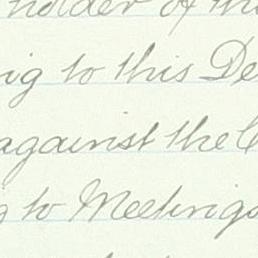 holder of the
ng to this De
against the C
g to Meetings